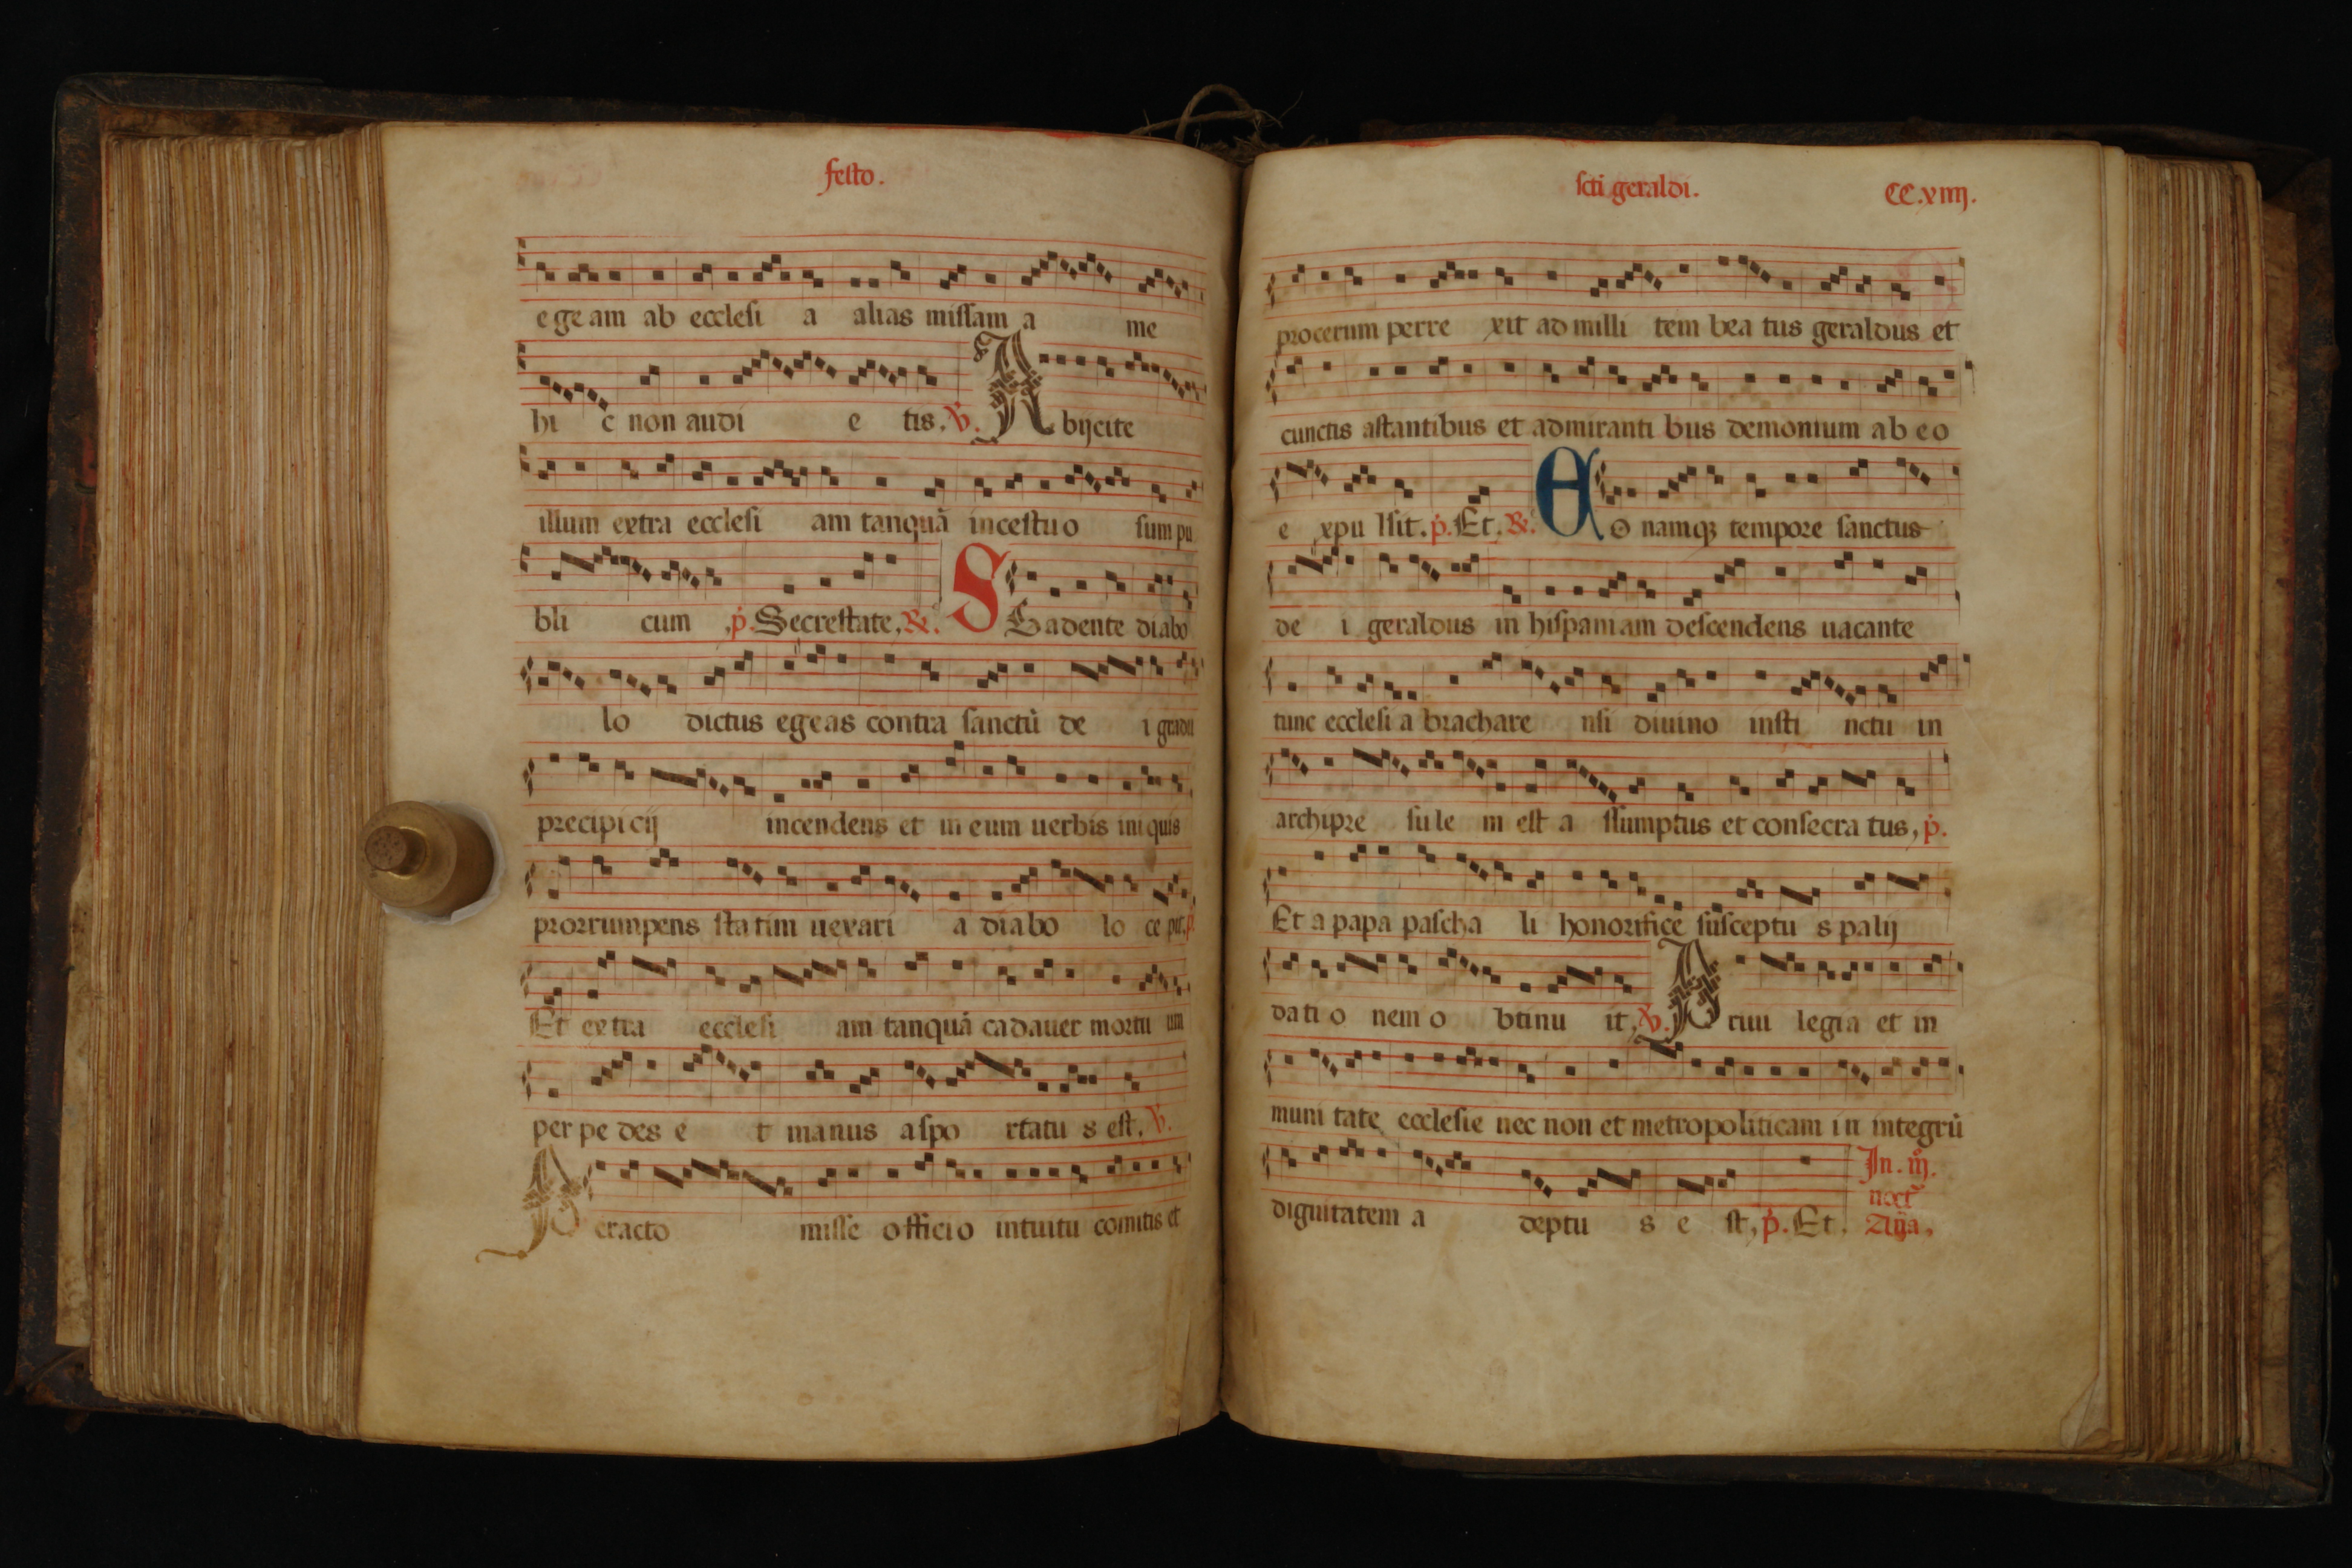 festo.
egeam ab ecclesi a alias missam a me
hi c non audi e tis. ℣. Abijcite
illum extra ecclesi am tanquā incestuo sum pu
bli cum p̄. Secrestate, ℟. S Sadente diabo
lo dictus egeas contra sanctū de i
precipi cij incendens et in eum uerbis ini quis
prorrumpens statim uexari a diabo lo ce pit. p̄
Et extra ecclesi am tanquā cadauer mortu um
per pe des e t manus aspo rtatu s est, ℣.
Peracto misse officio intuitu comitis et
scti geraldi. CC.xiiij.
procerum perre xit ad milli tem bea tus geraldus et
cunctis astantibus et admiranti bus demonium ab eo
e xpu lsit. p̄. Et. ℟. Eo namqȝ tempore sanctus
de i geraldus in hispaniam descendens uacante
tunc ecclesi a brachare nsi diuino insti nctu in
archipre sule m est a ssumptus et consecra tus, p̄.
Et a papa pascha li honorifice susceptu s palij
dati o nem o btinu it, ℣. Priui legia et in
muni tate ecclesie nec non et metropoliticam in integrū
dignitatem a deptu s e st, p̄. Et.
In. iij.
noct̄
Añа.